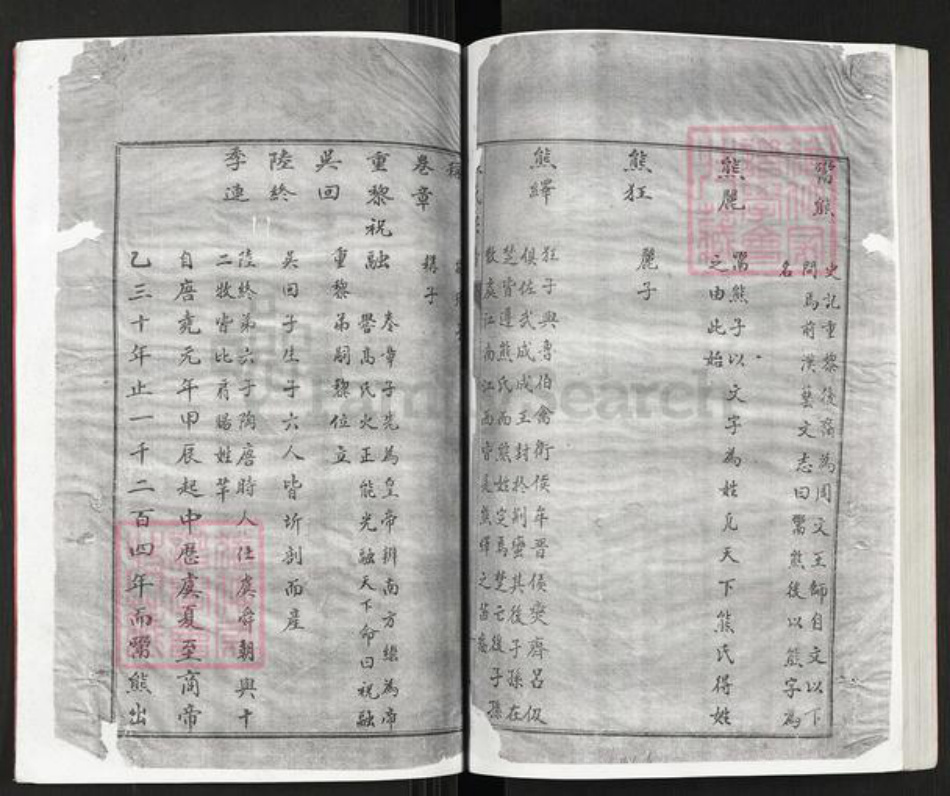 鬻熊
史記重黎後裔為周文王師自文以下
問焉前漢藝文志曰鬻熊後以熊字為
名
熊麗
鬻熊子以文字為姓凡天下熊氏得姓
之由此始
熊狂
麗子
熊繹
狂子與魯伯禽衛侯牟晉侯燮齊呂伋
俱佐武成成王封於荆蠻其後子孫在
楚皆遵熊氏而熊姓定焉楚亡後子孫
散處江南江西皆是熊繹之苗裔
卷章
稱子
重黎祝融
卷章子先為皇帝辦南方繼為帝
嚳高氏火正能光融天下命曰祝融
吳回
重黎弟嗣黎位立
陸終
吳回子生子六人皆坼剖而産
季連
陸終弟六子陶唐時人仕虞舜朝與十
二牧皆比肩賜姓芈
自唐堯元年甲辰起中歷虞夏至商帝
乙三十年止一千二百四年而鬻熊出
FamilySearch